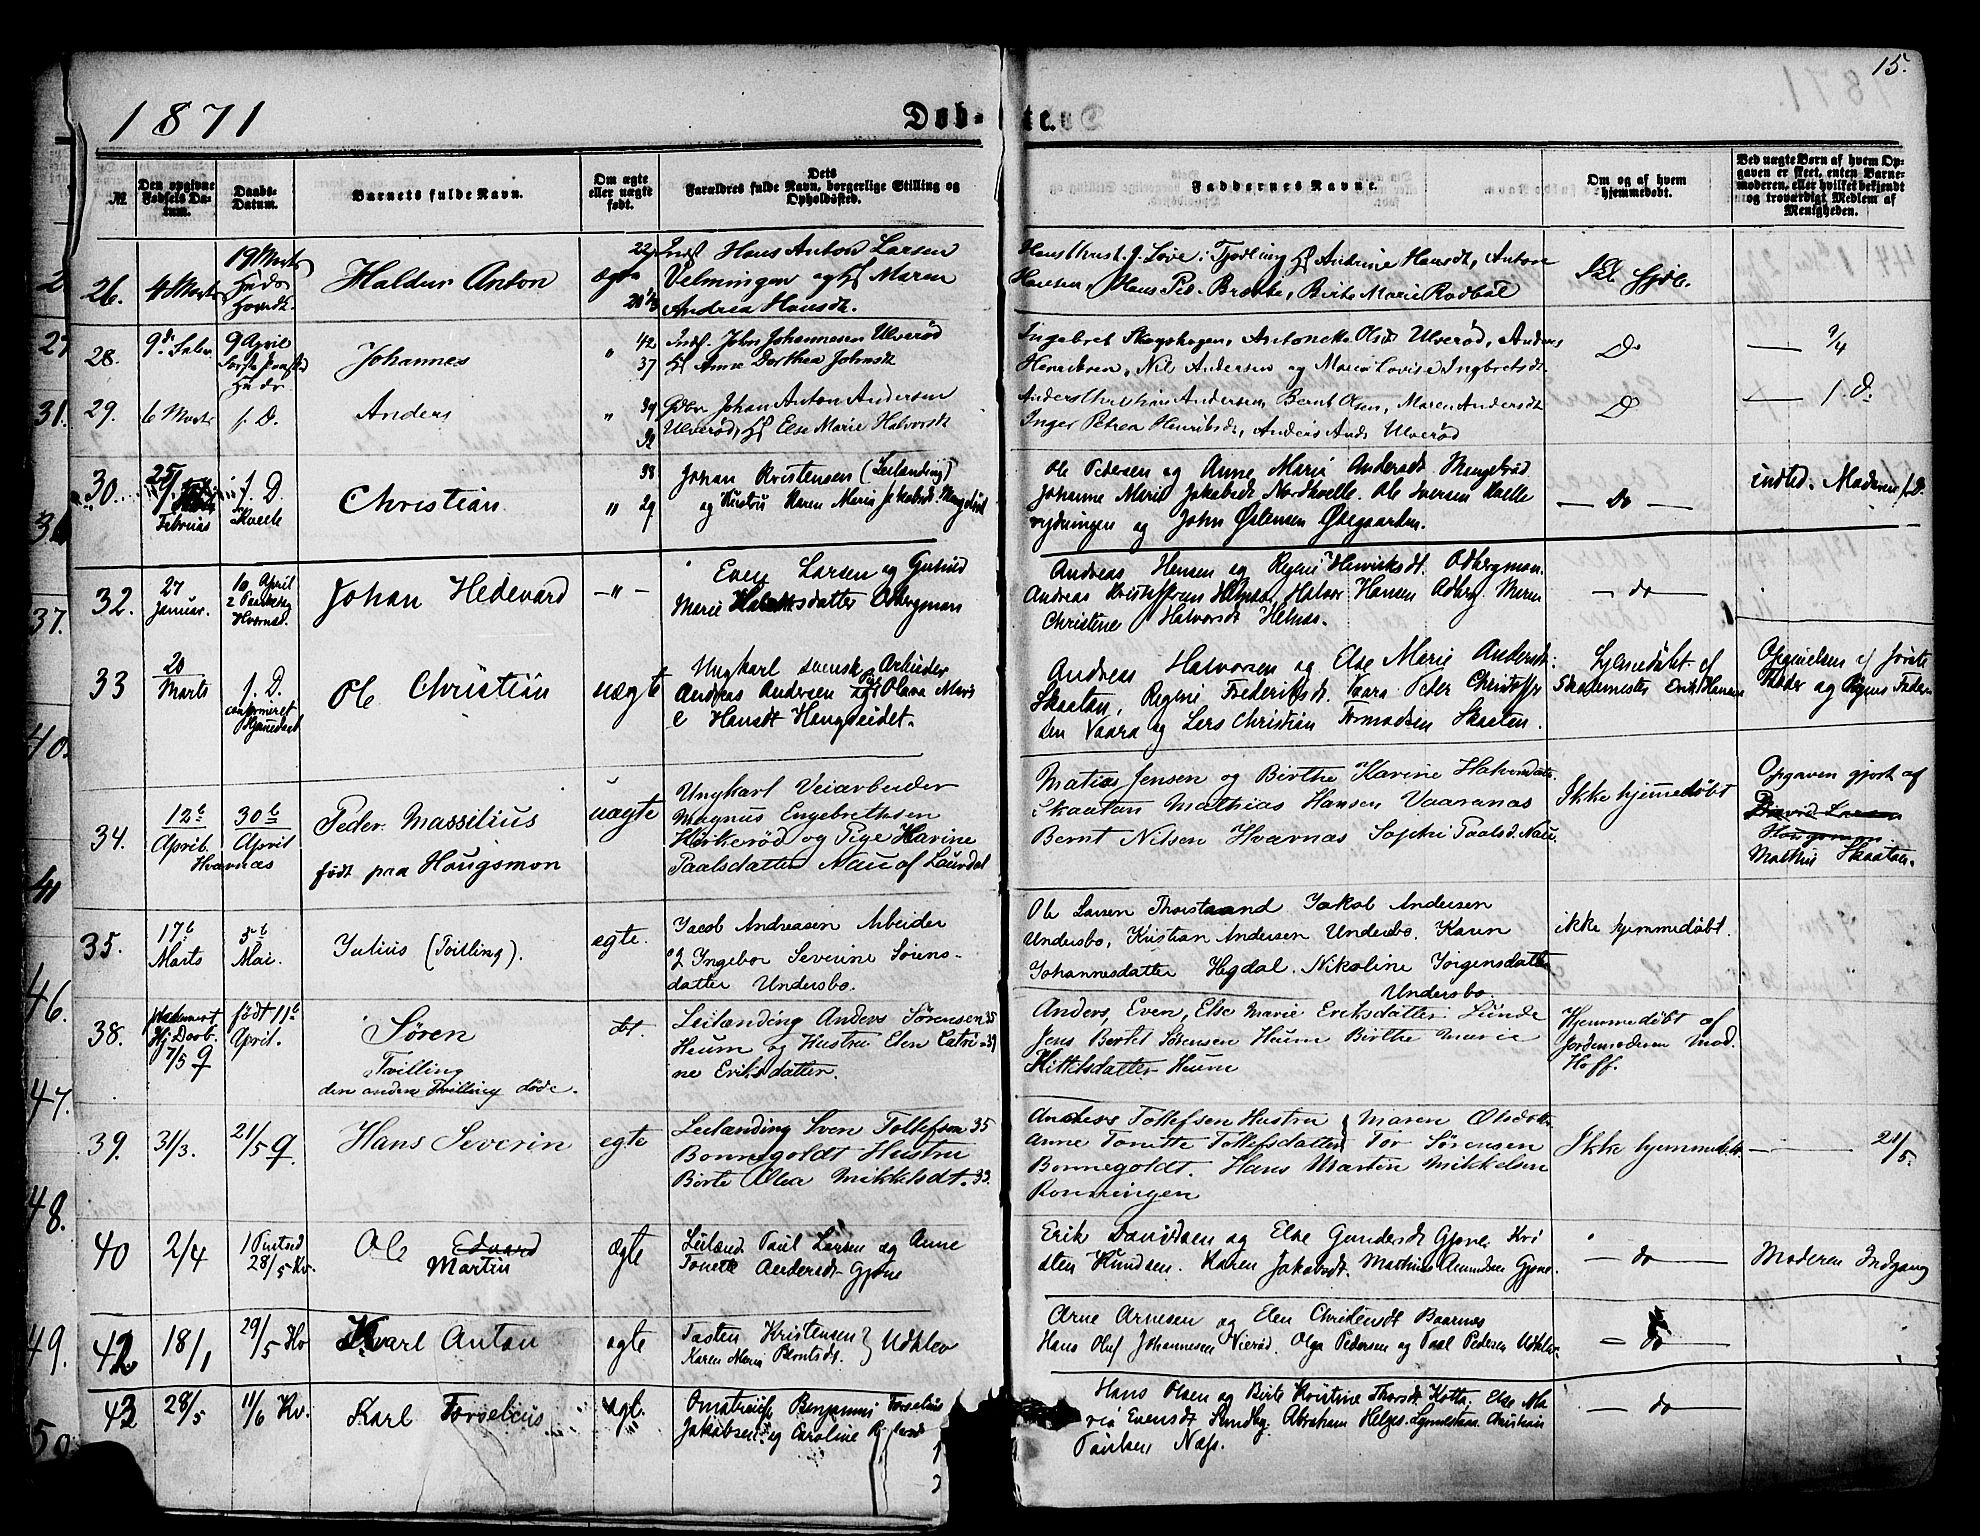 15.
1871
Døb- te.
№
Den opgivne Fødsels Datum.
Daabs-Datum.
Barnets fulde Navn.
Om ægte eller uægte født.
Dets Forældres fulde Navn, borgerlige Stilling og Opholdssted.
Faddernes Navne.
Om og af hvem hjemmedøbt.
Ved uægte Børn af hvem Opgaven er skeet, enten Barnemoderen, eller hvilket bekjendt og troværdigt Medlem af Menigheden.
26. 4 Marts 19 Marts
Haldur Anton
22
Hans Anton Larsen
Velmingen og Maren
Andrea Hansdt.
Hans Christ. J. Løve i Tjødling Andrine Hansdt, Anton
Hansen, Hans Ped. Brække, Birte Marie Rødbøl
Ikke hjdb.
28. 9 April
Johannes
" 42 37
John Johannesen Ulverød
Anne Dorthea Johnsdt
Ingebret Skogshagen, Antonette Olsdt Ulverød, Anders
Henriksen, Nil Andersen og Maria Lovise Ingbretsdt
Do
— 9/4
29. 6 Marts f. D.
Anders
" 39 32
Gdbr Johan Anton Andersen
Ulverød, Else Marie Halvorsdt
Anders Christian Andersen, Bernt Olsen, Maren Andersdt
Inger Petrea Henriksdt, Anders And. Ulverød
Do
— f. D.
30. 25/ Februar f. D. Kvelle
Christian
" 38 29
Johan Kristensen (Leilænding)
og Hustru Karen Maria Jakobsdt
Ole Pedersen og Anne Marie Andersdt
Johanne Marie Jakobsdt Nordkvelle. Ole Iversen Kvelle
rydningen og John Østensen Ødegaarden.
— do —
indted. Moderen f. D.
32. 27 Januar. 10 April 2 Paaskedag Hvarnes.
Johan Hedevard
— " —
Even Larsen og
Marie datter Odbergmon
Andreas Hansen og Regine Henriksdt. Odbergmon.
Andreas Kristoffersen Helnæs, Halvor Hansen Odberg, Maren
Christine Halvorsdt Helnæs.
— do —
33 20 Marts f. D. confirmeret
Ole Christian
uægte
Ungkarl svensk Arbeider
Andreas Andersen Pige Olava Mari
e Hansdt Hengseidet.
Andreas Halvorsen og Else Marie Andersdt.
Skaatan, Regine Frederiksdt. Vaara Peder Christoffer
sen Vaara og Lars Christian Tormodsen Skaaten.
Hjemedøbt af
Skolemester Erik Hansen
Opgivelsen af første
Fader og Regine Fader
34. 12te April. 30te April Hvarnæs
Peder Massilius
født paa Hougsmon
uægte
Ungkarl Veiarbeider
Magnus Engebrethsen
Kirkerød og Pige Karine
Paalsdatter Nau af Laurdal
Matias Jensen og Birthe Karine Halvorsdatter.
Skaatan Mathias Hansen Vaaranæs
Bernt Nilsen Hvarnæs Sophi Paalsd. Nau.
Ikke hjemmedøbt
Opgaven gjort af
David Larsen
Hougsmon
Mathis Skaatan.
35. 17te Marts 5te Mai.
Julius (Tvilling).
egte.
Jacob Andreasen Arbeider
og Ingebor Severine Sørens-
datter Undersbo.
Ole Larsen Thorstvand Jakob Andersen
Undersbo, Kristian Andersen Undersbo. Karen
Johannesdatter Hegdal. Nikoline Jorgensdatter
Undersbo.
ikke hjemmedøbt.
38. Hj. Daab. 7/5 født 11te April.
Søren
Tvilling
den anden Tvilling døde.
dt
Leilænding Anders Sørensen 35
Heum og Hustru Elen Catri- 39
ne Eriksdatter.
Anders, Even, Else Marie Eriksdatter Lunde
Jens Bertel Sørensen Heum Birthe Marie
Kittelsdatter Heum
Hjemmedøbt af
Jordemoderen Mad.
Hoff.
39. 31/3. 21/5
Hans Severin
egte
Leilænding Sven Tollefsen 35
Bonnegoldt Hustru
Børte Olea Mikkelsdt. 33.
Andreas Tollefsen Hustru Maren Olsdatter
Anne Tonette Tollefsdatter Tor Sørensen
Bonnegoldt. Hans Martin Mikkelsen
Ronningen
Ikke hjemmedøbt.
— 21/5.
40 2/4 1 Pintsd 28/5 Kv.
Ole Edvard
Martin
ægte
Leilænd. Paul Larsen og Anne
Tonette Andersdt Gjone
Erik Davidsen og Else Gundersdt Gjone Kri
sten Knudsen. Karen Jakobsdt. Mathias Amundsen Gjone.
— do —
Moderen Indgang
42 18/1 29/5 Kv
Karl Anton
egte
Tosten Kristensen
Karen Maria Bentsdt. } Udklev
Arne Arnesen og Elen Christensdt Baarnes
Hans Oluf Johannesen Vierød. Olga Pedersen og Paal Pedersen Udklev.
— do
43 28/5 11/6 Kv.
Karl Torselius
ægt.
Benjamin Torselius
Jakobsen og Caroline
Hans Olsen og Birte Kristine Thorsdt Kotta, Else Ma
ria Evensdt Sundby. Abraham Helges. Christian
Paulsen Næss.
— do
2
27
31.
36
37.
40.
41
46.
47.
48.
49.
50